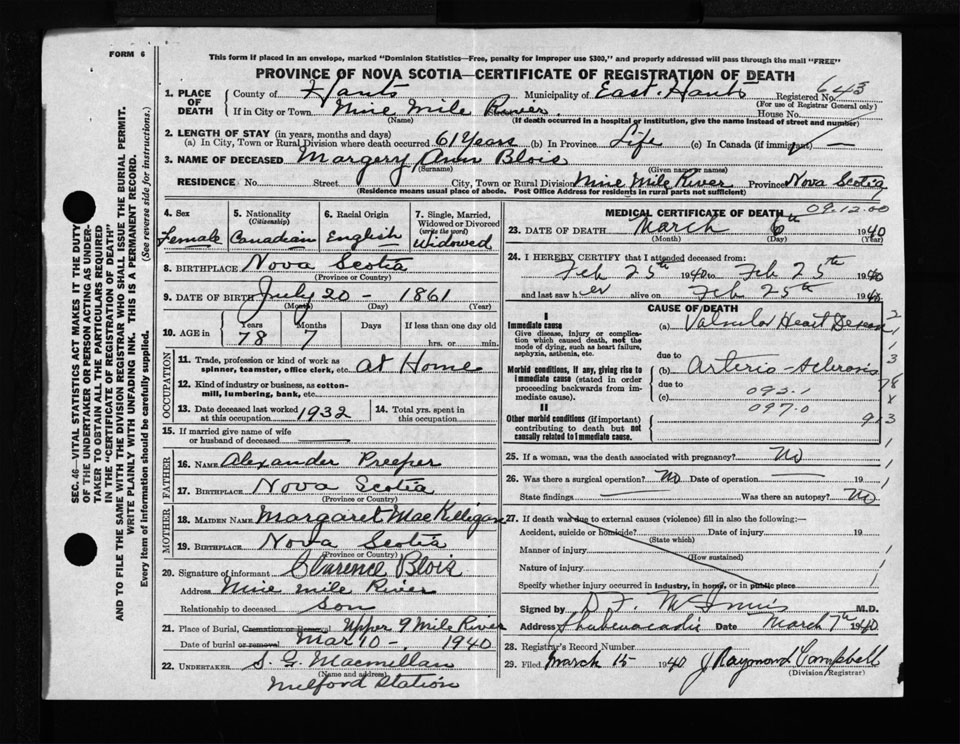 FORM 6
This form if placed in an envelope, marked "Dominion Statistics—Free, penalty for improper use $300," and properly addressed will pass through the mail "FREE"
PROVINCE OF NOVA SCOTIA—CERTIFICATE OF REGISTRATION OF DEATH
1. PLACE OF DEATH County of Hants Municipality of East Hants Registered No. 643
(For use of Registrar General only)
If in City or Town Nine Mile River House No.
(Name) (If death occurred in a hospital or institution, give the name instead of street and number)
2. LENGTH OF STAY (in years, months and days)
(a) In City, Town or Rural Division where death occurred 61 Years (b) In Province Life (c) In Canada (if immigrant) —
3. NAME OF DECEASED Margery Ann Blois
(Surname) (Given name or names)
RESIDENCE No. Street City, Town or Rural Division Nine Mile River Province Nova Scotia
(Residence means usual place of abode. Post Office Address for residents in rural parts not sufficient)
SEC. 46—VITAL STATISTICS ACT MAKES IT THE DUTY
OF THE UNDERTAKER OR PERSON ACTING AS UNDER-
TAKER TO OBTAIN ALL THE PARTICULARS REQUIRED
IN THE "CERTIFICATE OF REGISTRATION OF DEATH"
AND TO FILE THE SAME WITH THE DIVISION REGISTRAR WHO SHALL ISSUE THE BURIAL PERMIT.
WRITE PLAINLY WITH UNFADING INK. THIS IS A PERMANENT RECORD.
Every item of information should be carefully supplied. (See reverse side for instructions.)
4. Sex Female
5. Nationality (Citizenship) Canadian
6. Racial Origin English
7. Single, Married, Widowed or Divorced (write the word) Widowed
8. BIRTHPLACE Nova Scotia
(Province or Country)
9. DATE OF BIRTH July 20 - 1861
(Month) (Day) (Year)
10. AGE in Years 78 Months 7 Days If less than one day old
hrs. or min.
OCCUPATION
11. Trade, profession or kind of work as spinner, teamster, office clerk, etc. at Home
12. Kind of industry or business, as cotton-mill, lumbering, bank, etc.
13. Date deceased last worked at this occupation 1932 14. Total yrs. spent in this occupation
15. If married give name of wife or husband of deceased
FATHER
16. NAME Alexander Preeper
17. BIRTHPLACE Nova Scotia
(Province or Country)
MOTHER
18. MAIDEN NAME Margaret MacKilligan
19. BIRTHPLACE Nova Scotia
(Province or Country)
20. Signature of informant Clarence Blois
Address Nine mile River
Relationship to deceased Son
21. Place of Burial, Cremation or Removal Upper 9 Mile River
Date of burial or removal Mar 10 - 1940
22. UNDERTAKER S. G. Macmellan
(Name and address)
Milford Station
MEDICAL CERTIFICATE OF DEATH 09.12.00
23. DATE OF DEATH March 6th 1940
(Month) (Day) (Year)
24. I HEREBY CERTIFY that I attended deceased from:
Feb 25th 1940 to Feb 25th 1940
and last saw her alive on Feb 25th 1940
CAUSE OF DEATH
I
Immediate cause
Give disease, injury or complication which caused death, not the mode of dying, such as heart failure, asphyxia, asthenia, etc.
(a) Valvular Heart Disease
due to
Morbid conditions, if any, giving rise to immediate cause (stated in order proceeding backwards from immediate cause).
(b) Arterio-sclerosis
due to 092.1
(c) 097.0
II
Other morbid conditions (if important) contributing to death but not causally related to immediate cause.
25. If a woman, was the death associated with pregnancy? No
26. Was there a surgical operation? No Date of operation — 19
State findings — Was there an autopsy? No
27. If death was due to external causes (violence) fill in also the following:—
Accident, suicide or homicide? Date of injury 19
(State which)
Manner of injury
(How sustained)
Nature of injury
Specify whether injury occurred in industry, in home, or in public place
Signed by D F McInnis M.D.
Address Shubenacadie Date March 7th 1940
28. Registrar's Record Number
29. Filed March 15 1940 J Raymond Campbell
(Division Registrar)